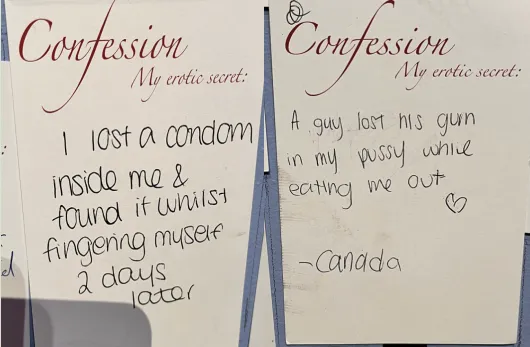 Confession
My erotic secret:
I lost a condom
inside me &
found it whilst
fingering myself
2 days
later
Confession
My erotic secret:
A guy lost his gum
in my pussy while
eating me out
-Canada